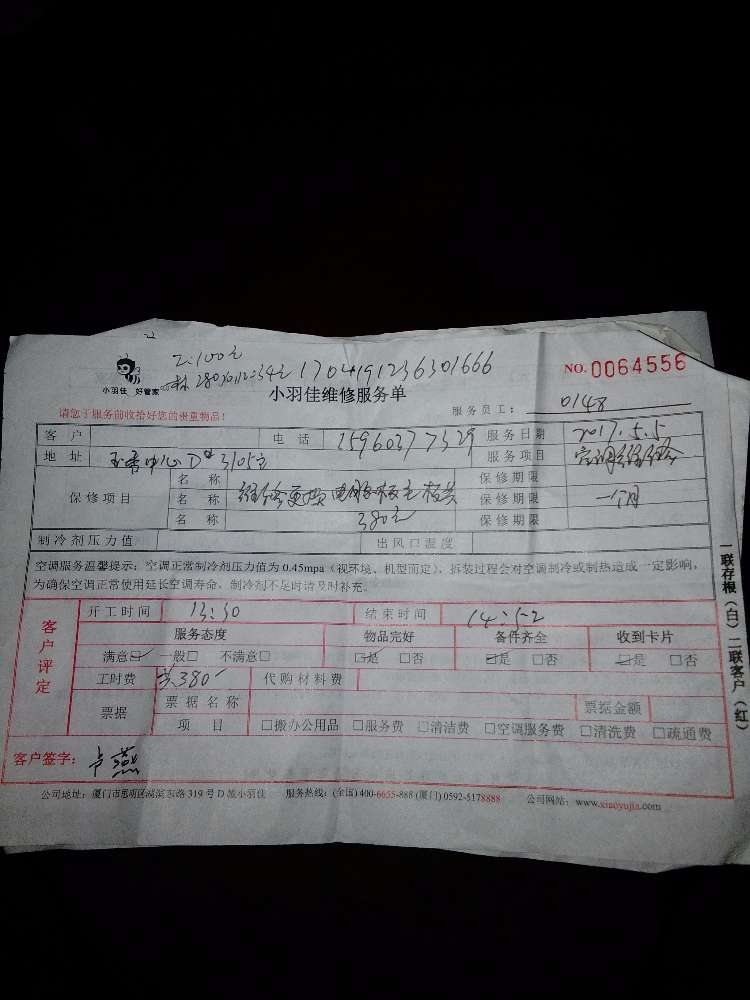 170419123630166​6
NO. 0064556
小羽佳 好管家
小羽佳维修服务单
请您于服务前收拾好您的贵重物品!
服务员工: 0148
客户 电话 15960377329 服务日期 2017.5.5
地址 中心D 3105 服务项目 空调维修
名称 保修期限
保修项目 名称 维修更换电脑板主板共 保修期限 一个月
名称 380元 保修期限
制冷剂压力值 出风口温度
空调服务温馨提示:空调正常制冷剂压力值为 0.45mpa(视环境、机型而定),拆装过程会对空调制冷或制热造成一定影响,
为确保空调正常使用延长空调寿命,制冷剂不足时请及时补充。
客户评定
开工时间 13:30 结束时间 14:52
服务态度 物品完好 备件齐全 收到卡片
满意☑ 一般□ 不满意□ ☑是 □否 ☑是 □否 ☑是 □否
工时费 380 代购材料费
票据 票据名称 票据金额
项目 □搬办公用品 □服务费 □清洁费 □空调服务费 □清洗费 □疏通费
客户签字: 卢燕
一联存根(白)二联客户(红)
公司地址:厦门市思明区湖滨东路 319 号 D 栋小羽佳 服务热线:(全国) 400-6655-888 (厦门) 0592-5178888 公司网站:www.xiaoyujia.com